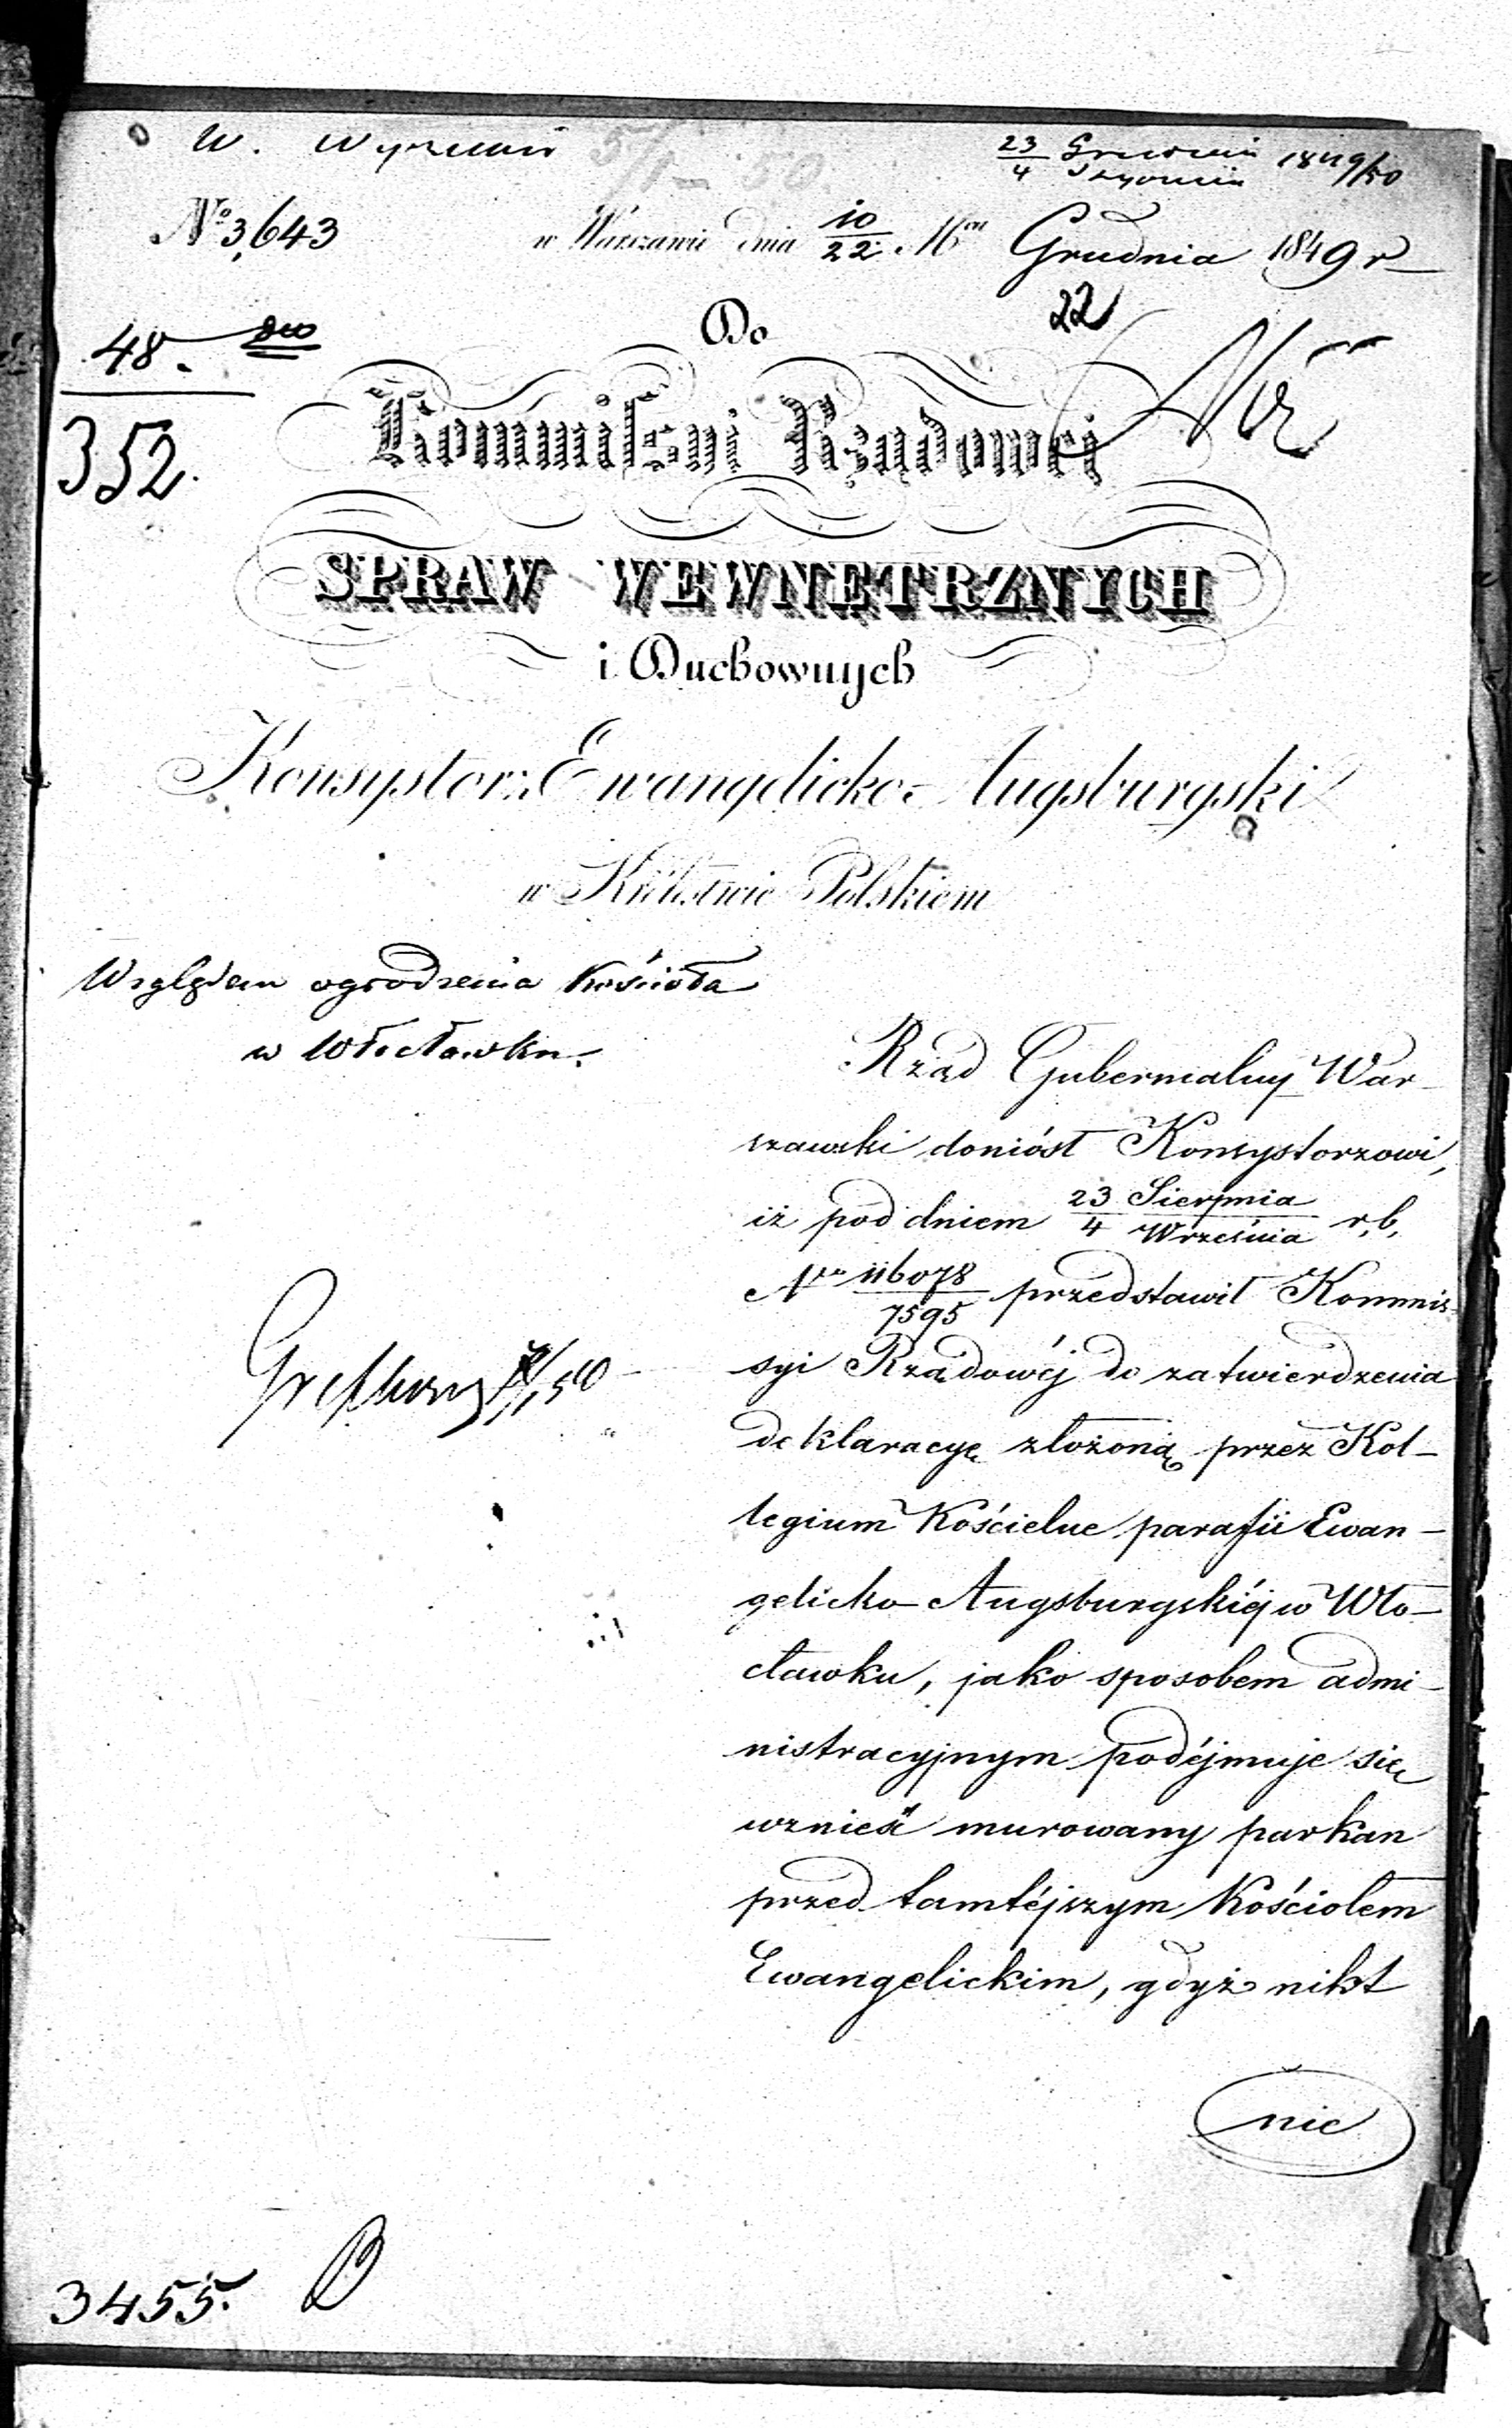 W. Wyznań 5/1 - 50.
23 Grudnia 1849/50
4 Stycznia
No 3,643
w Warszawie dnia 10/22 Mca Grudnia 1849 r
22
48.
352.
Do
Kommissyi Rządowej
SPRAW WEWNĘTRZNYCH
i Duchownych
Konsystorz Ewangelicko-Augsburgski
w Królestwie Polskiem
Względem ogrodzenia Kościoła
w Włocławku.
Rząd Gubernialny War-
szawski doniósł Konsystorzowi,
iż pod dniem 23 Sierpnia / 4 Września r, b,
Nro 116078/7595 przedstawił Kommis-
syi Rządowéj do zatwierdzenia
deklaracyę złożoną przez Kol-
legium Kościelne parafii Ewan-
gelicko-Augsburgskiéj w Wło-
cławku, jako sposobem admi-
nistracyjnym podéjmuje się
wznieść murowany parkan
przed tamtéjszym Kościołem
Ewangelickim, gdyż nikt
nie
3455.